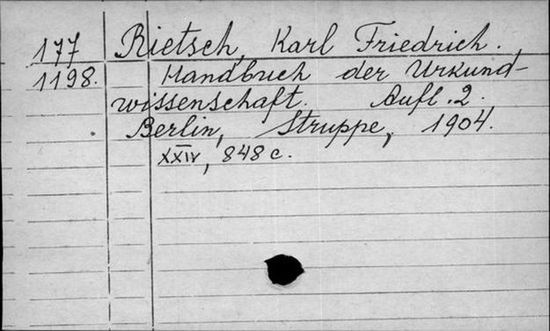 177 Rietsch, Karl Friedrich.
1198. Handbuch der Urkund-
wissenschaft. Aufl. 2.
Berlin, Struppe, 1904.
XXIV, 848 c.